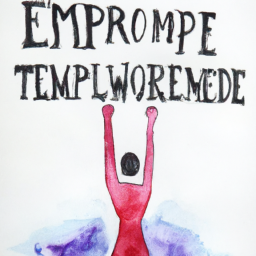 EMPROMPE
TEMPLWOREMEDE